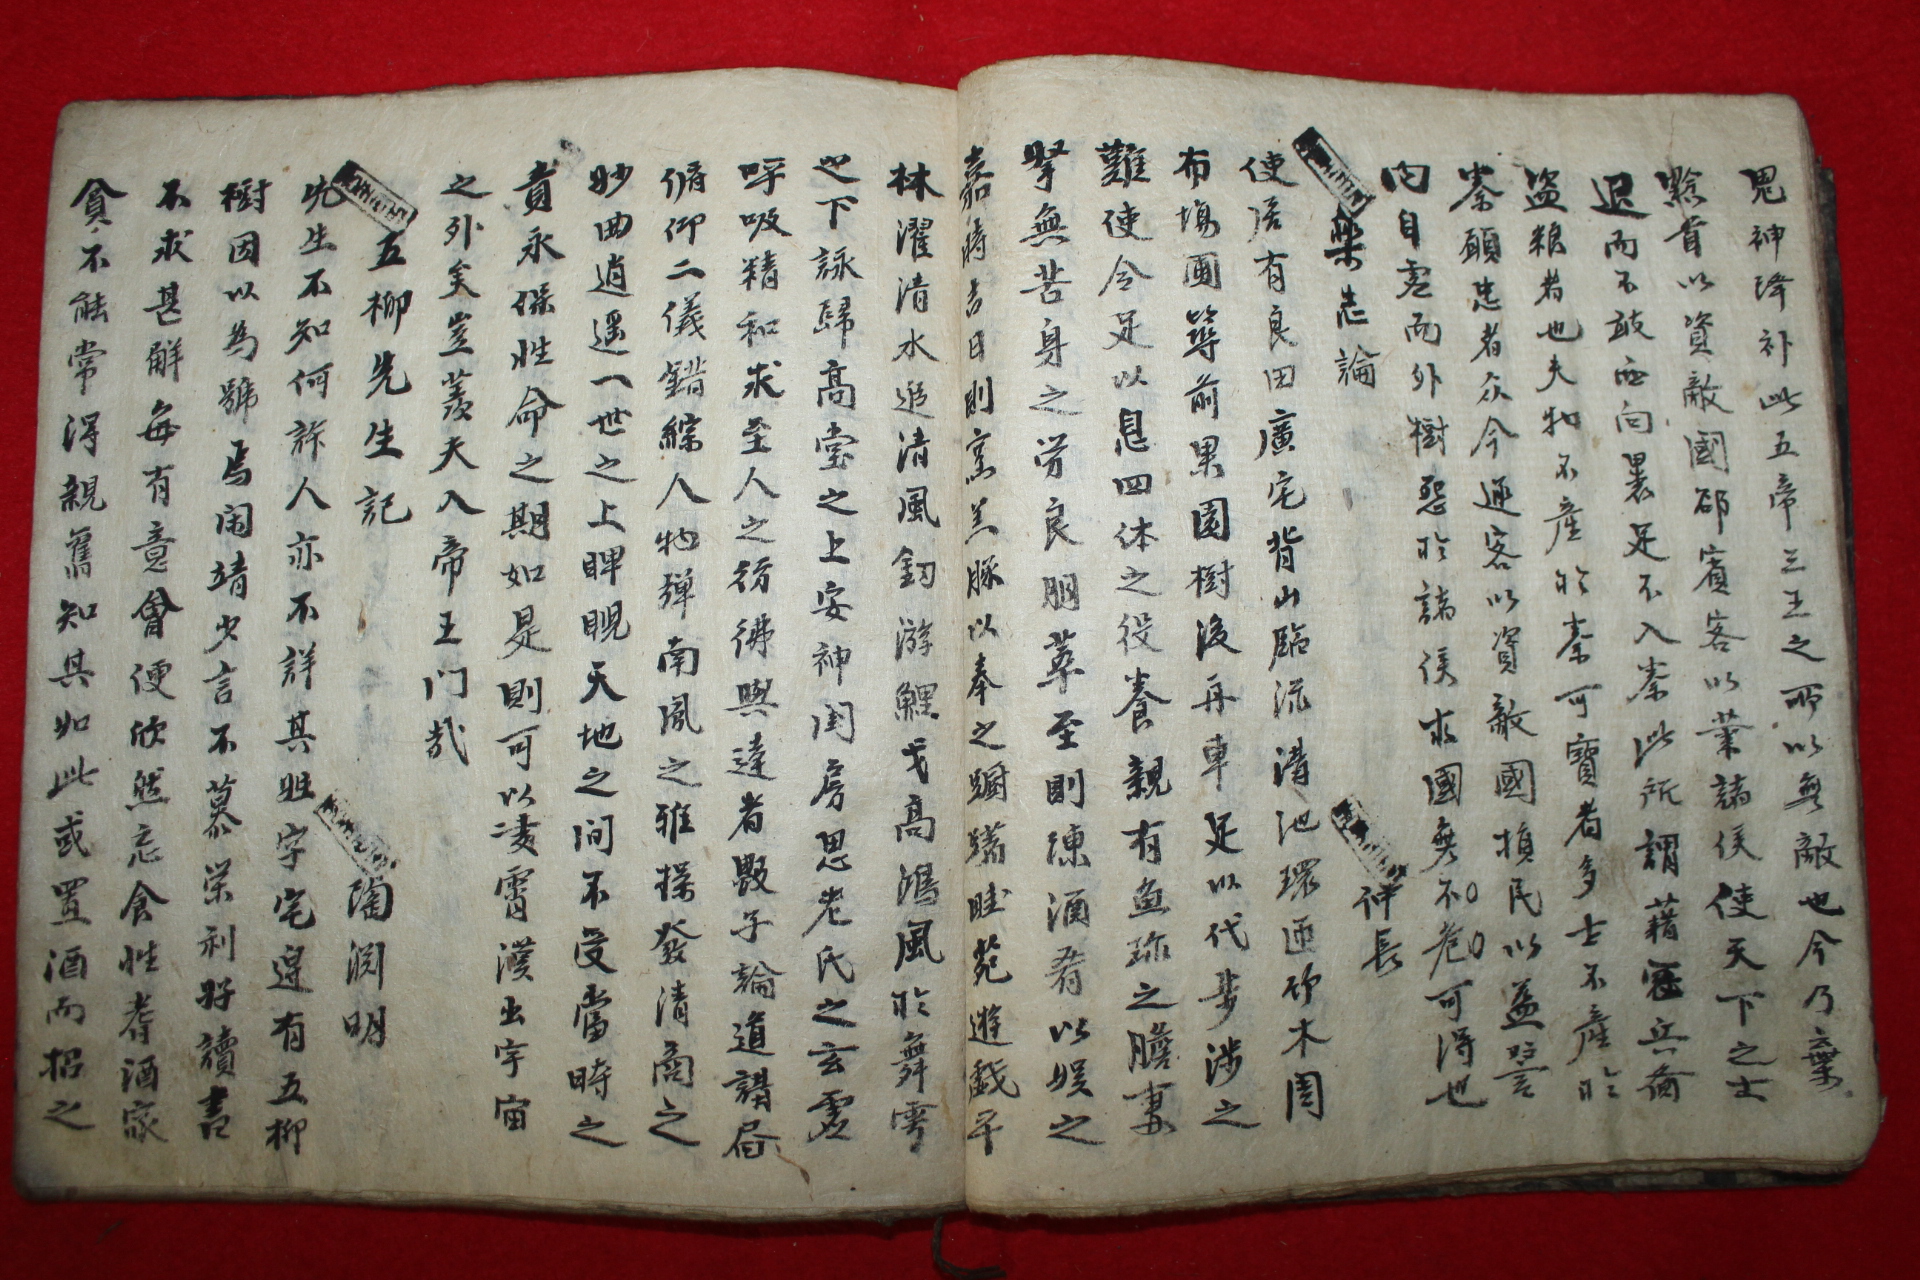 鬼神降礻卜此五帝三王之所以無敵也今乃棄
黔首以資敵國却賓客以業諸侯使天下之士
退而不敢西向裹足不入秦此所謂藉寇兵齎
盜粮者也夫物不産於秦可寶者多士不産於
秦願忠者众今逐客以資敵國損民以益讐
內自虛而外樹怨於諸侯求國無不危可得也
樂志論 仲長
使居有良田廣宅背山臨流溝池環匝竹木周
布場圃築前果園樹後舟車足以代步涉之
難使令足以息四体之役養親有兼珎之膳妻
孥無苦身之勞良朋萃至則陳酒肴以娛之
嘉時吉日則烹羔豚以奉之躕躇畦苑遊戱平
林濯清水追清風釣游鯉弋高鴻風於舞雩
之下詠歸高堂之上安神閨房思老氏之玄虛
呼吸精和求至人之彷彿與達者數子論道講昼
俯仰二儀錯綜人物弹南風之雅操發清商之
妙曲逍遥一世之上睥睨天地之间不受當時之
責永保性命之期如是則可以凌霄漢出宇宙
之外矣豈羨夫入帝王門哉
五柳先生記 陶淵明
先生不知何許人亦不詳其姓字宅邊有五柳
樹因以為號焉闲靖少言不慕荣利好讀書
不求甚解每有意會便欣然忘食性嗜酒家
貧不能常得親舊知其如此或置酒而招之